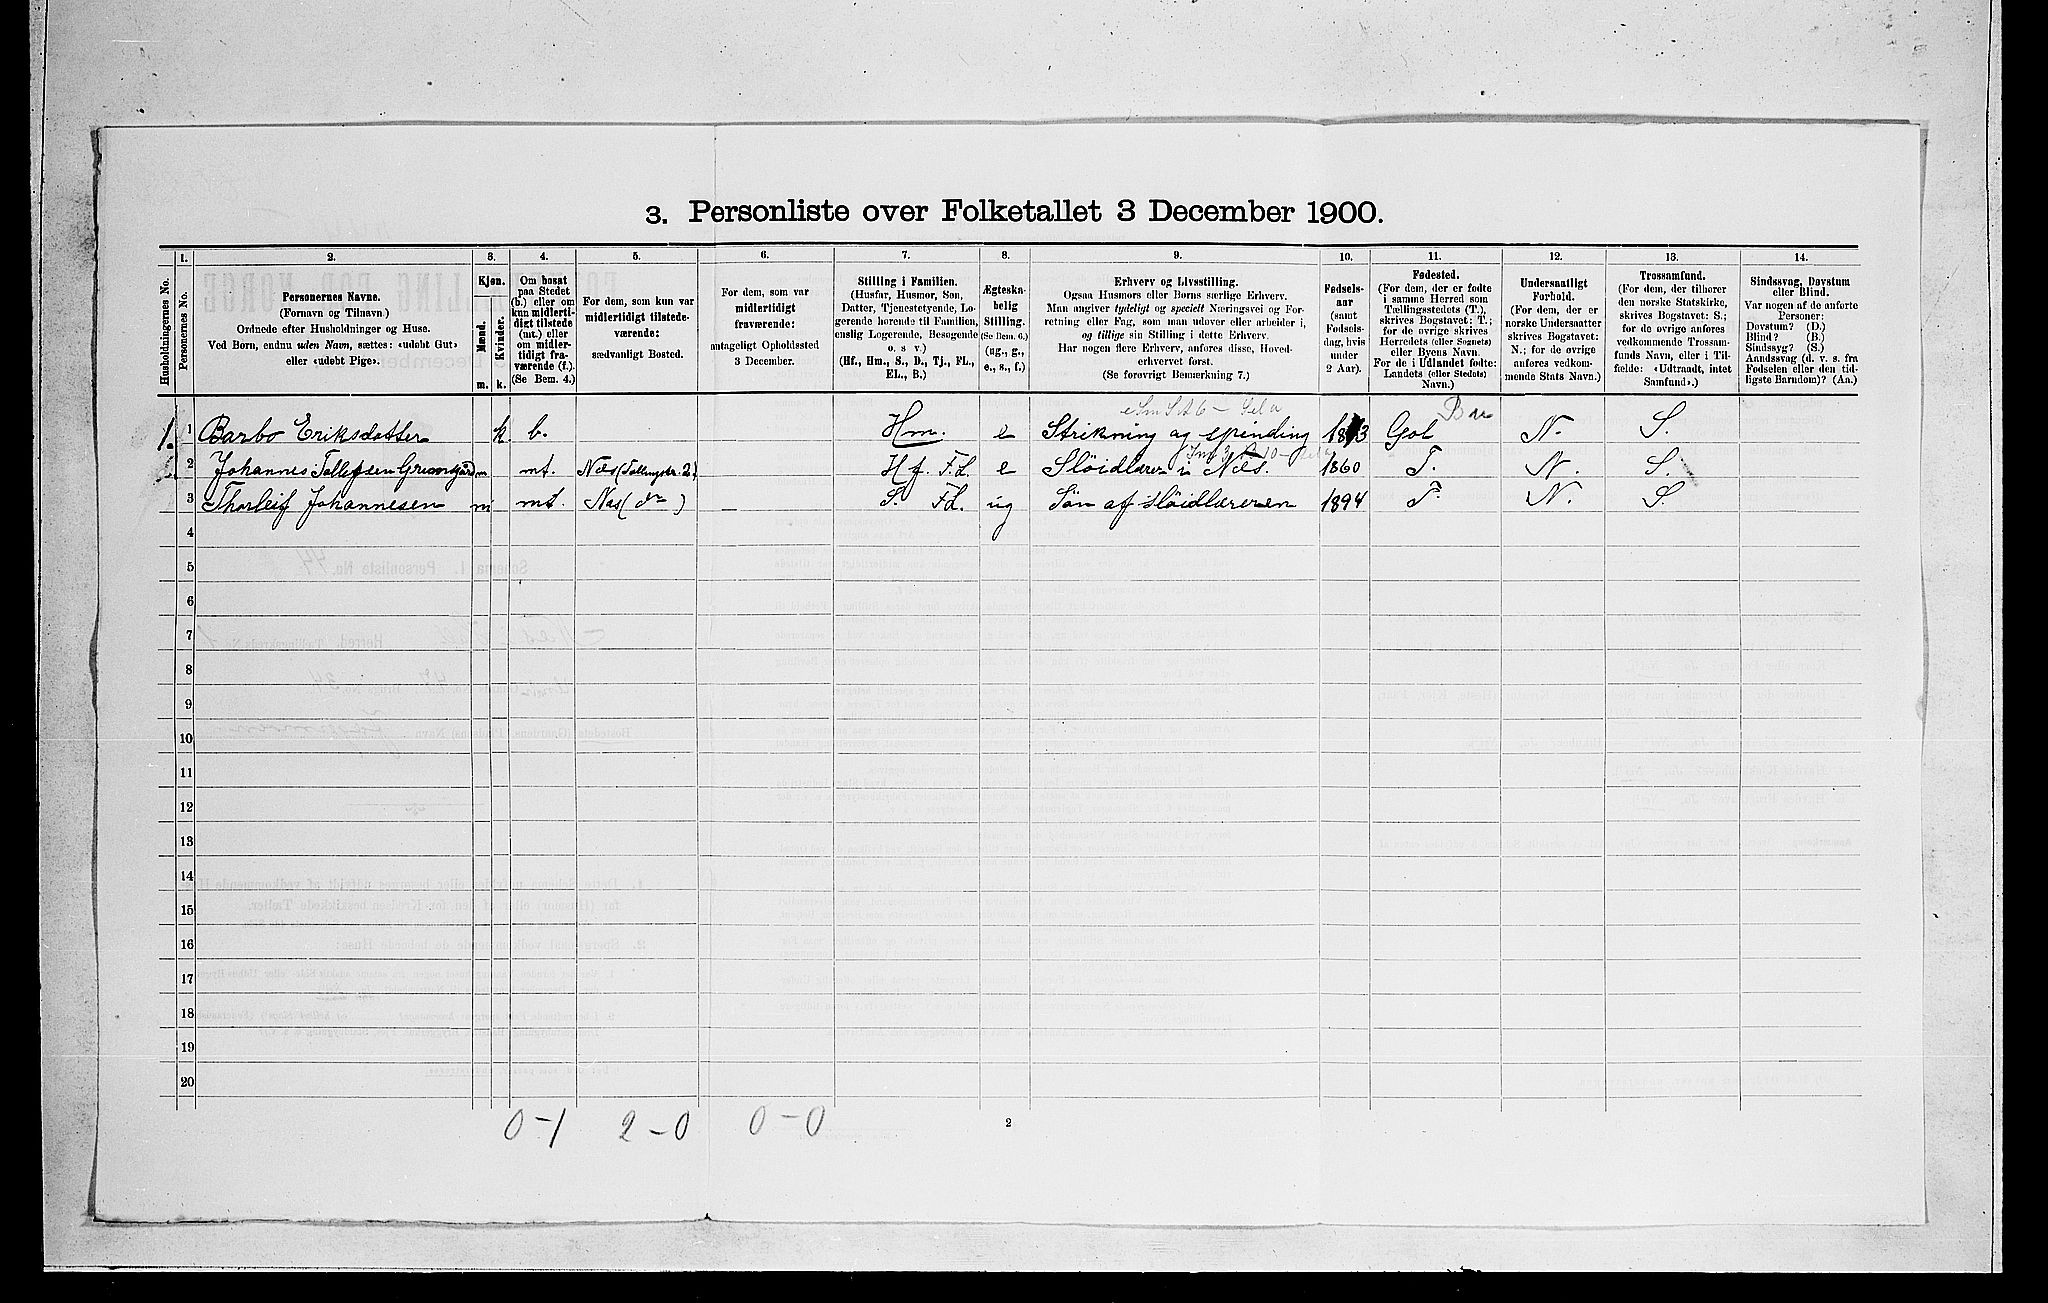 3. Personliste over Folketallet 3 December 1900.
1. 2. 3. 4. 5. 6. 7. 8. 9. 10. 11. 12. 13. 14.
Husholdningernes No.
Personernes No.
Personernes Navne.
(Fornavn og Tilnavn)
Ordnede efter Husholdninger og Huse.
Ved Børn, endnu uden Navn, sættes: «udøbt Gut»
eller «udøbt Pige».
Kjøn.
Mænd.
Kvinder.
m. k.
Om bosat
paa Stedet
(b.) eller om
kun midlerti-
digt tilstede
(mt.) eller
om midler-
tidigt fra-
værende (f.)
(Se Bem. 4.)
For dem, som kun var
midlertidigt tilstede-
værende:
sædvanligt Bosted.
For dem, som var
midlertidigt
fraværende:
antageligt Opholdssted
3 December.
Stilling i Familien.
(Husfar, Husmor, Søn,
Datter, Tjenestetyende, Lo-
gerende hørende til Familien,
enslig Logerende, Besøgende
o. s v.)
(Hf., Hm., S., D., Tj., FL.,
EL., B.)
Ægteska-
belig
Stilling.
(Se Bem. 6.)
(ug., g.,
e., s., f.)
Erhverv og Livsstilling.
Ogsaa Husmors eller Børns særlige Erhverv.
Man angiver tydeligt og specielt Næringsvei og For-
retning eller Fag, som man udøver eller arbeider i,
og tillige sin Stilling i dette Erhverv.
Har nogen flere Erhverv, anføres disse, Hoved-
erhvervet først.
(Se forøvrigt Bemærkning 7.)
Fødsels-
aar
(samt
Fødsels-
dag, hvis
under
2 Aar).
Fødested.
(For dem, der er fødte
i samme Herred som
Tællingsstedets (T.),
skrives Bogstavet: T.;
for de øvrige skrives
Herredets (eller Sognets)
eller Byens Navn.
For de i Udlandet fødte:
Landets (eller Stedets)
Navn.)
Undersaatligt
Forhold.
(For dem, der er
norske Undersaatter
skrives Bogstavet:
N.; for de øvrige
anføres vedkom-
mende Stats Navn.)
Trossamfund.
(For dem, der tilhører
den norske Statskirke,
skrives Bogstavet: S.;
for de øvrige anføres
vedkommende Trossam-
funds Navn, eller i Til-
fælde: «Udtraadt, intet
Samfund».)
Sindssvag, Døvstum
eller Blind.
Var nogen af de anførte
Personer:
Døvstum? (D.)
Blind? (B.)
Sindssyg? (S.)
Aandssvag (d. v. s. fra
Fødselen eller den tid-
ligste Barndom)? (Aa.)
1. 1 Barbo Eriksdatter k b. Hm. e Strikning og spinding Gol N. S.
2 Johannes Tollefsen m mt. Næs (Tællingskr. 2) Hf. F.L. e Slöidlærer i Næs. 1860 T. N. S.
3 Thorleif Johannesen m mt. Næs (do) — S. F.L. ug Søn af slöidlæreren 1894 T. N. S.
4
5
6
7
8
9
10
11
12
13
14
15
16
17
18
19
20
0 – 1 2 – 0 0 – 0
2